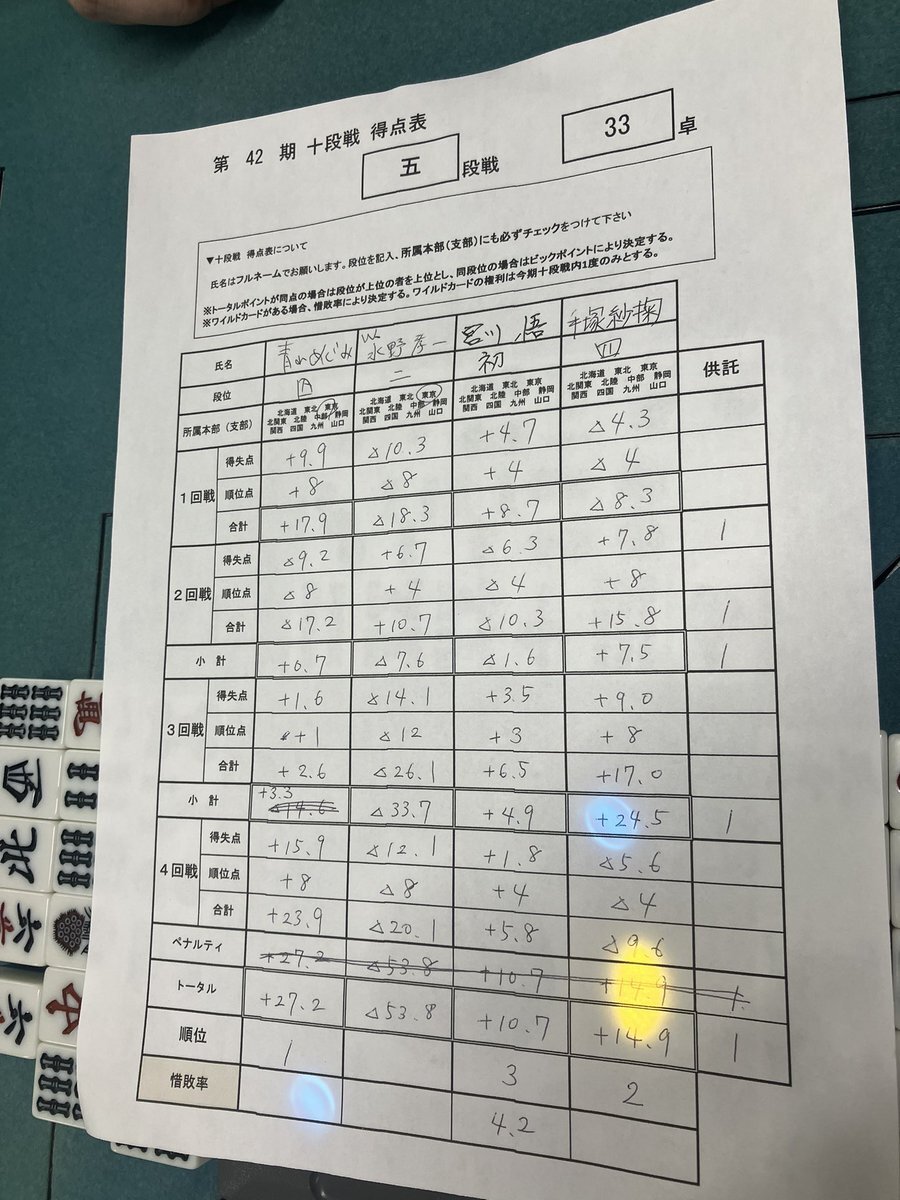 第 42 期 十段戦 得点表
五 段戦 33 卓
▼十段戦 得点表について
氏名はフルネームでお願いします。段位を記入、所属本部(支部)にも必ずチェックをつけて下さい
※トータルポイントが同点の場合は段位が上位の者を上位とし、同段位の場合はビックポイントにより決定する。
※ワイルドカードがある場合、惜敗率により決定する。ワイルドカードの権利は今期十段戦内1度のみとする。
氏名 青山めぐみ 水野孝一 宮川 悟 手塚紗掬 供託
段位 四 二 初 四
所属本部(支部) 北海道 東北 東京 北海道 東北 東京 北海道 東北 東京 北海道 東北 東京
北関東 北陸 中部 静岡 北関東 北陸 中部 静岡 北関東 北陸 中部 静岡 北関東 北陸 中部 静岡
関西 四国 九州 山口 関西 四国 九州 山口 関西 四国 九州 山口 関西 四国 九州 山口
1回戦 得失点 +9.9 △10.3 +4.7 △4.3
順位点 +8 △8 +4 △4
合計 +17.9 △18.3 +8.7 △8.3
2回戦 得失点 △9.2 +6.7 △6.3 +7.8 1
順位点 △8 +4 △4 +8
合計 △17.2 +10.7 △10.3 +15.8 1
小計 +0.7 △7.6 △1.6 +7.5 1
3回戦 得失点 +1.6 △14.1 +3.5 +9.0
順位点 +1 △12 +3 +8
合計 +2.6 △26.1 +6.5 +17.0
小計 +3.3 △14.6 △33.7 +4.9 +24.5 1
4回戦 得失点 +15.9 △12.1 +1.8 △5.6
順位点 +8 △8 +4 △4
合計 +23.9 △20.1 +5.8 △9.6
ペナルティ +27.2 △53.8 +10.7 +14.9 1
トータル +27.2 △53.8 +10.7 +14.9 1
順位 1 3 2
惜敗率 4.2